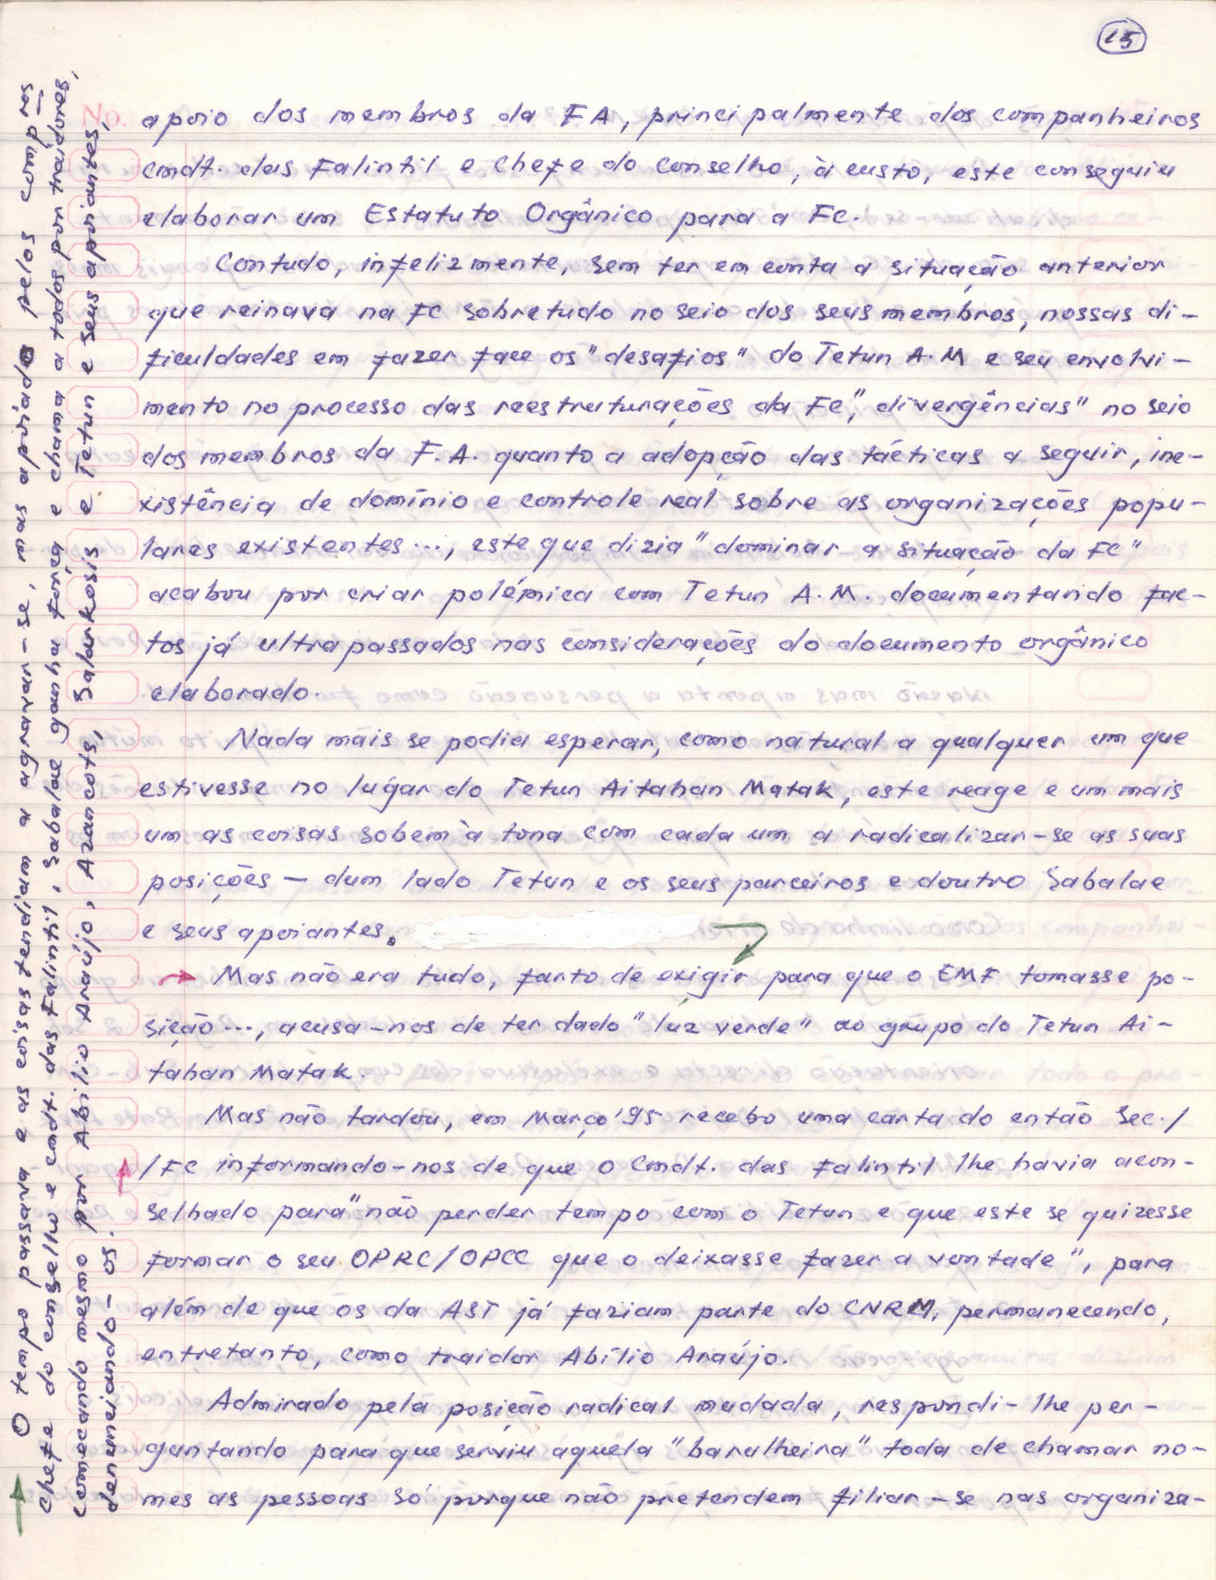 15
No.
apoio dos membros da FA, principalmente dos companheiros
cmdt. das Falintil e chefe do conselho, à custo, este conseguiu
elaborar um Estatuto Orgânico para a FC.
Contudo, infelizmente, sem ter em conta a situação anterior
que reinava na FC sobretudo no seio dos seus membros, nossas di-
ficuldades em fazer face os "desafios" do Tetun A.M e seu envolvi-
mento no processo das reestruturações da FC, "divergências" no seio
dos membros da F.A. quanto a adopção das tácticas a seguir, ine-
xistência de domínio e controle real sobre as organizações popu-
lares existentes..., este que dizia "dominar a situação da FC"
acabou por criar polémica com Tetun A.M. documentando fac-
tos já ultrapassados nas considerações do documento orgânico
elaborado.
Nada mais se podia esperar, como natural a qualquer um que
estivesse no lugar do Tetun Aitahan Matak, este reage e um mais
um as coisas sobem à tona com cada um a radicalizar-se as suas
posições — dum lado Tetun e os seus parceiros e doutro Sabalae
e seus apoiantes.
Mas não era tudo, farto de exigir para que o EMF tomasse po-
sição..., acusa-nos de ter dado "luz verde" ao grupo do Tetun Ai-
tahan Matak.
Mas não tardou, em Março '95 recebo uma carta do então Sec./
/FC informando-nos de que o Cmdt. das Falintil lhe havia acon-
selhado para "não perder tempo com o Tetun e que este se quizesse
formar o seu OPRC/OPCC que o deixasse fazer a vontade", para
além de que os da AST já faziam parte do CNRM, permanecendo,
entretanto, como traidor Abílio Araújo.
Admirado pela posição radical mudada, respondi-lhe per-
guntando para que serviu aquela "baralheira" toda de chamar no-
mes as pessoas só porque não pretendem filiar-se nas organiza-
O tempo passava e as coisas tendiam a agravar-se, mas apoiado pelos compros
chefe do conselho e cmdt. das Falintil, Sabalae ganha força e chama a todos por traidores,
começando mesmo por Abílio Araújo, Azancots, Salurkosis e Tetun e seus apoiantes,
denunciando-os.